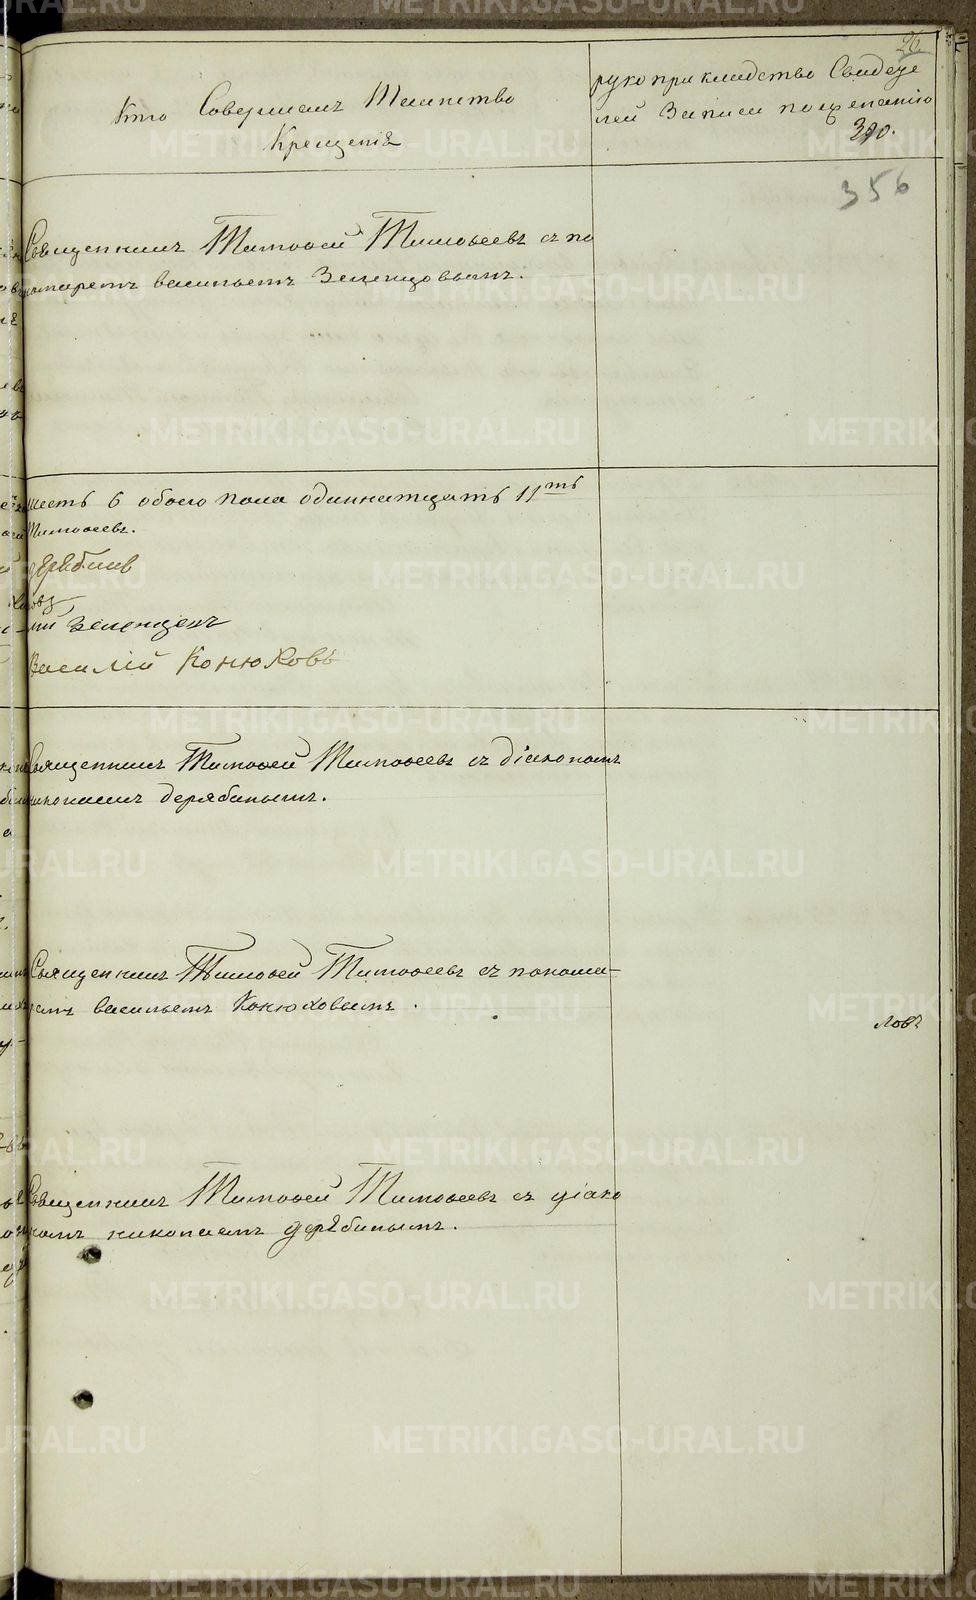 26
Кто Совершалъ Таинство
Крещенія
рукоприкладство Свидете
лей Записи пожеланію
390.
356
Священникъ Тимоѳей Тимоѳеевъ съ по
номаремъ васильемъ Зеленцовымъ.
шесть 6 обоего пола одиннатцать 11ть
Тимоѳеевъ.
Дерябинъ
ковъ
лій Зеленцовъ
Василій Конюховъ
Священникъ Тимоѳей Тимоѳеевъ съ діакономъ
николаемъ дерябинымъ.
Священникъ Тимоѳей Тимоѳеевъ съ понома-
ремъ васильемъ Конюховымъ.
ловъ
Священникъ Тимоѳей Тимоѳеевъ съ діако
номъ николаемъ дерябинымъ.
METRIKI.GASO-URAL.RU